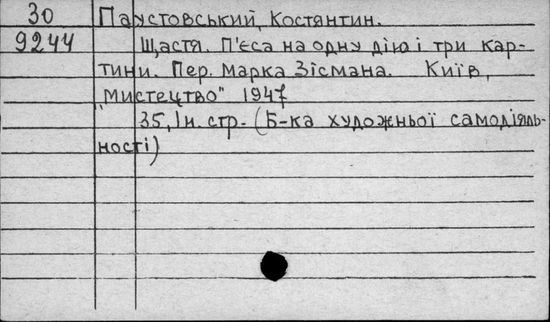 30 Паустовський, Костянтин.
9244 Щастя. П'єса на одну дію і три кар-
тини. Пер. Марка Зісмана. Київ,
"Мистецтво" 1947
35, Ін. стр. (Б-ка художньої самодіяль-
ності)